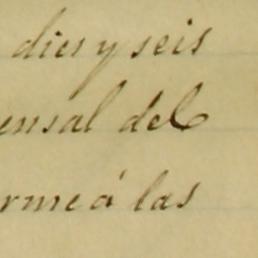 dies y seis
ensal del
rme á las